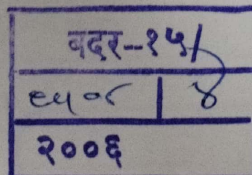 वदर-१५/
८५०८ | ४
२००६